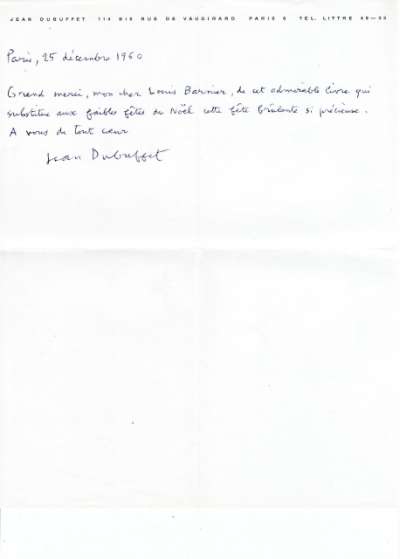 JEAN DUBUFFET 114 BIS RUE DE VAUGIRARD PARIS 6 TEL. LITTRE
Paris, 25 décembre 1960
Grand merci, mon cher Louis Barnier, de cet admirable livre qui
substitue aux faibles fêtes de Noël cette fête brûlante si précieuse.
A vous de tout cœur
Jean Dubuffet